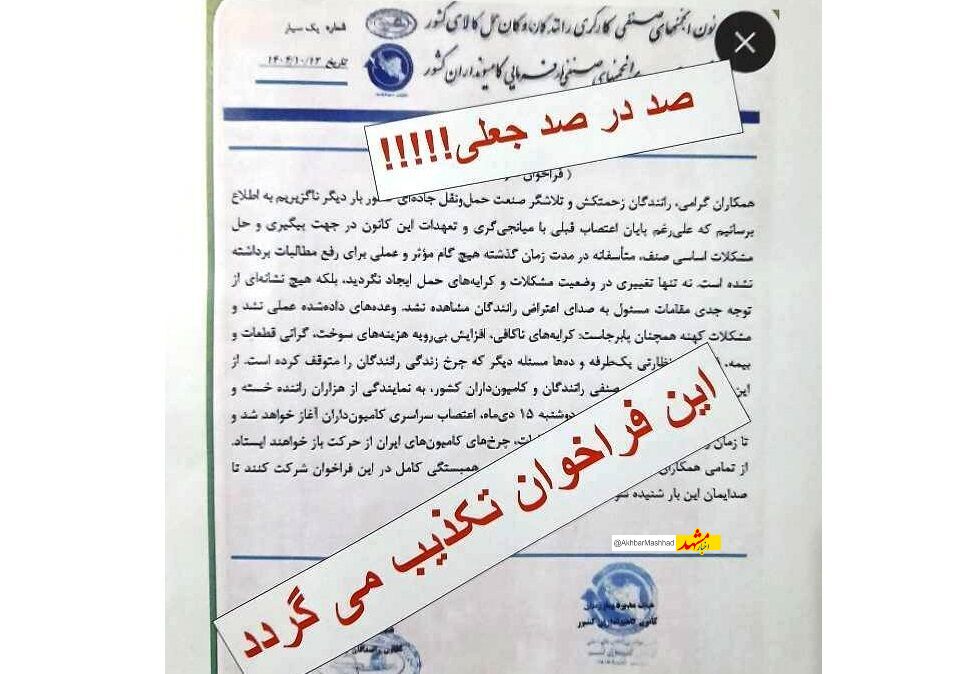 نون انجمنهای صنفی کارگری رانندگان وکان حمل کالای کشور
شماره یک سیار
انجمنهای صنفی کارفرمایی کامیونداران کشور
تاریخ ۱۴۰۴/۱۰/۱۳
صد در صد جعلی!!!!!
( فراخوان
همکاران گرامی، رانندگان زحمتکش و تلاشگر صنعت حمل‌ونقل جاده‌ای بار دیگر ناگزیریم به اطلاع
برسانیم که علی‌رغم پایان اعتصاب قبلی با میانجی‌گری و تعهدات این کانون در جهت پیگیری و حل
مشکلات اساسی صنف، متأسفانه در مدت زمان گذشته هیچ گام مؤثر و عملی برای رفع مطالبات برداشته
نشده است. نه تنها تغییری در وضعیت مشکلات و کرایه‌های حمل ایجاد نگردید، بلکه هیچ نشانه‌ای از
توجه جدی مقامات مسئول به صدای اعتراض رانندگان مشاهده نشد. وعده‌های داده‌شده عملی نشد و
مشکلات کهنه همچنان پابرجاست: کرایه‌های ناکافی، افزایش بی‌رویه هزینه‌های سوخت، گرانی قطعات و
بیمه، نظارتی یک‌طرفه و ده‌ها مسئله دیگر که چرخ زندگی رانندگان را متوقف کرده است. از
این صنفی رانندگان و کامیون‌داران کشور، به نمایندگی از هزاران راننده خسته و
دوشنبه ۱۵ دی‌ماه، اعتصاب سراسری کامیون‌داران آغاز خواهد شد و
تا زمان چرخ‌های کامیون‌های ایران از حرکت باز خواهند ایستاد.
از تمامی همکاران همبستگی کامل در این فراخوان شرکت کنند تا
صدایمان این بار شنیده
این فراخوان تکذیب می گردد
@AkhbarMashhad
اخبار مشهد